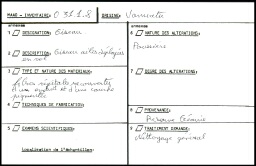 MAAO - INVENTAIRE: O 31.1.8
ORIGINE: Vannerie
annexes
1 DESIGNATION: Oiseau
2 DESCRIPTION: Oiseau ailes déployées
en vol
3 TYPE ET NATURE DES MATERIAUX:
fibre végétale recouverte
d'un enduit et d'une couche
pigmentée
4 TECHNIQUES DE FABRICATION:
5 EXAMENS SCIENTIFIQUES:
Localisation de l'échantillon:
annexes
6 NATURE DES ALTERATIONS:
Poussière
7 DEGRE DES ALTERATIONS:
8 PROVENANCE:
Réserve Océanie
9 TRAITEMENT DEMANDE:
Nettoyage général